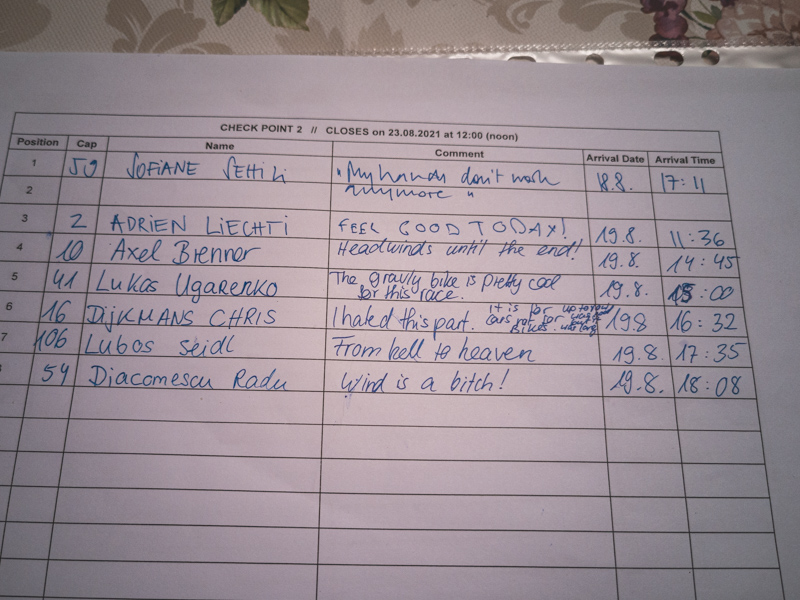 CHECK POINT 2 // CLOSES on 23.08.2021 at 12:00 (noon)
Position Cap Name Comment Arrival Date Arrival Time
1 59 SOFIANE SEHILI "My hands don't work 18.8. 17:11
anymore"
2
3 2 ADRIEN LIECHTI FEEL GOOD TODAY! 19.8. 11:36
4 10 Axel Brenner Headwinds until the end! 19.8. 14:45
5 41 Lukas Ugarenko The gravly bike is pretty cool 19.8. 15:00
for this race.
6 16 DIJKMANS CHRIS I hated this part. It is for 19.8 16:32
cars not for
Bikes.
7 106 Lubos Seidl From hell to heaven 19.8. 17:35
54 Diacomescu Radu Wind is a bitch! 19.8. 18:08